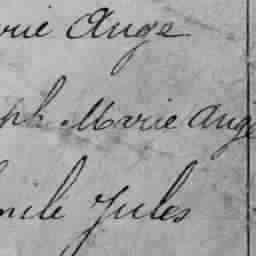 rie Ange
ph Marie Ange
mile Jules